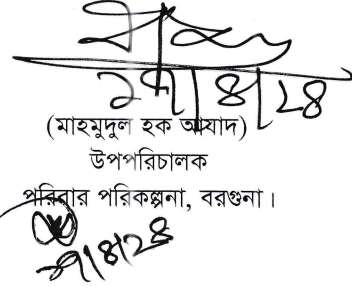 ২৭/৪/২৪
(মাহমুদুল হক আযাদ)
উপপরিচালক
পরিবার পরিকল্পনা, বরগুনা।
২৭/৪/২৪